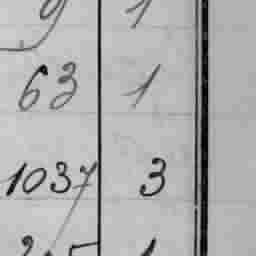 9 1
63 1
1037 3